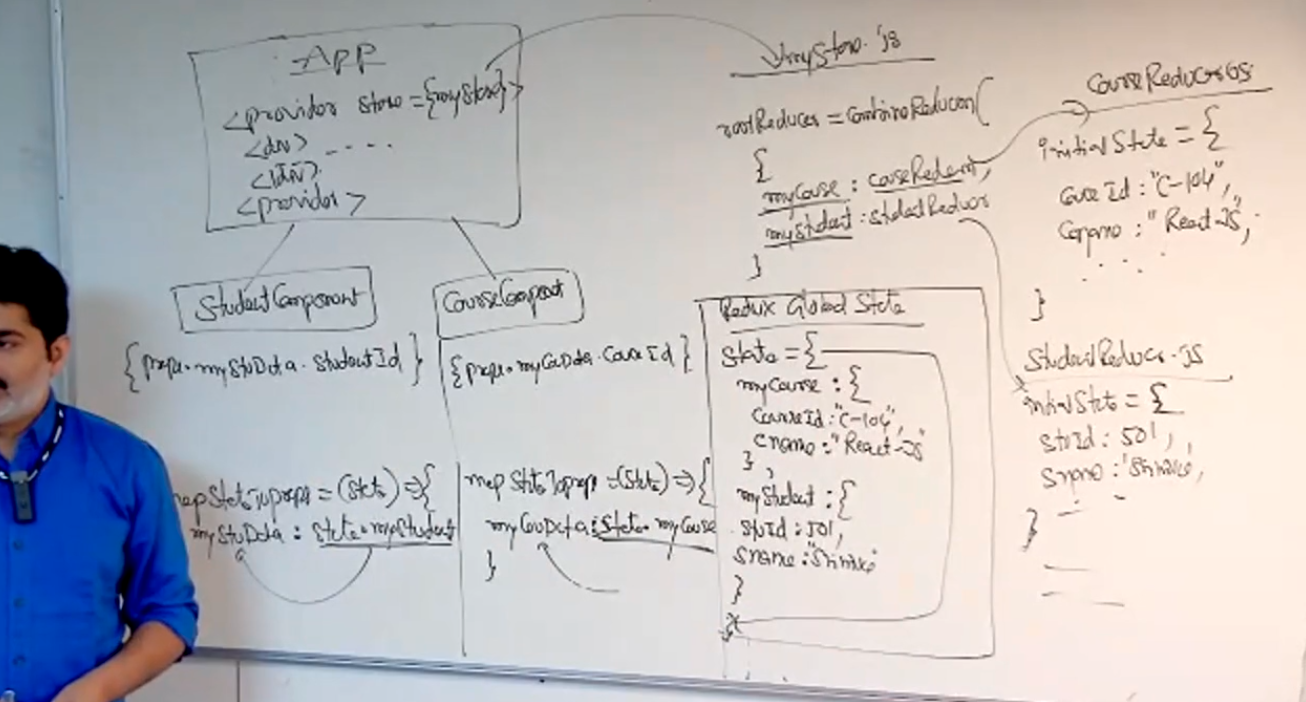 App
<provider store={myStore}>
<div> ....
</div>
<provider>
StudentComponent
{props.myStuData.studentId}
mapStateToprops=(State)=>{
myStuData : state.myStudent
CourseComponent
{props.myCouData.CourseId}
mapStateToprops=(State)=>{
myCouData:State.myCourse
}
myStore.js
rootReducer=combineReducers(
{
myCourse : courseReducer,
myStudent : studentReducer
}
Redux Global State
State={
myCourse : {
CourseId:"C-104",
Cname:"React-JS"
},
myStudent : {
stuId:501,
sname:
}
}
CourseReducer.JS
initialState={
CourseId:"C-104",
Cname:"React-JS",
. . . .
}
StudentReducer.JS
initialState={
stuId:501,
sname:
}